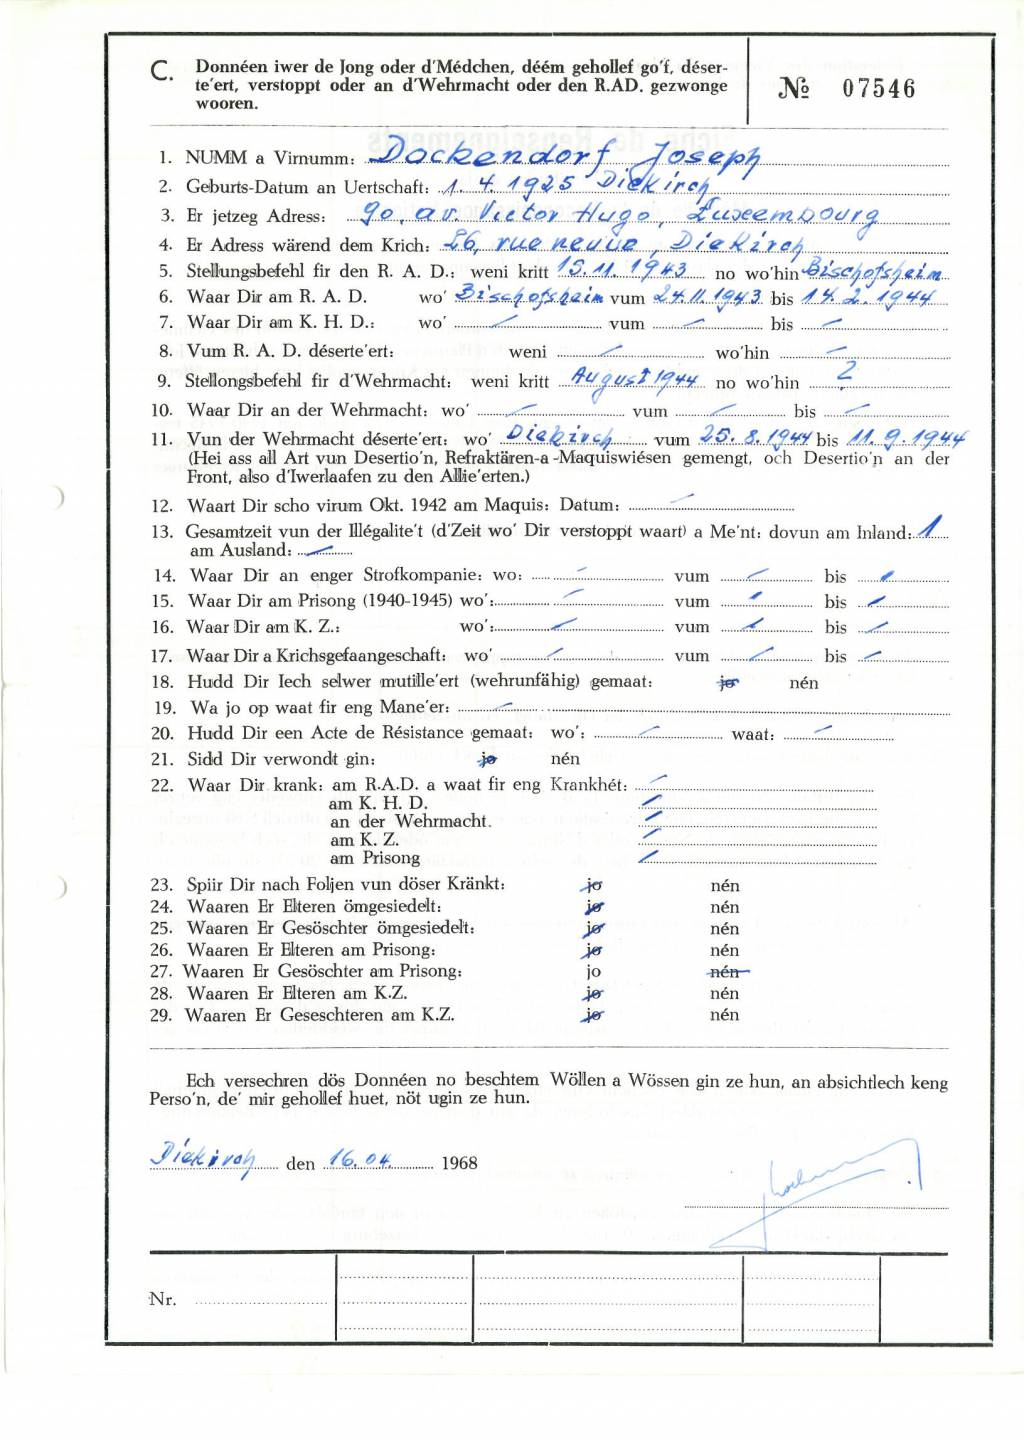 C. Donnéen iwer de Jong oder d'Médchen, déém gehollef go'f, déser-
te'ert, verstoppt oder an d'Wehrmacht oder den R.AD. gezwonge
wooren.
№ 07546
1. NUMM a Virnumm: Dockendorf Joseph
2. Geburts-Datum an Uertschaft: 1. 4. 1925 Diekirch
3. Er jetzeg Adress: 90, av. Victor Hugo, Luxembourg
4. Er Adress wärend dem Krich: 26, rue neuve, Diekirch
5. Stellungsbefehl fir den R. A. D.: weni kritt 15.11.1943 no wo'hin Bischofsheim
6. Waar Dir am R. A. D. wo' Bischofsheim vum 24.11.1943 bis 14.2.1944
7. Waar Dir am K. H. D.: wo' — vum — bis —
8. Vum R. A. D. déserte'ert: weni — wo'hin —
9. Stellongsbefehl fir d'Wehrmacht: weni kritt August 1944 no wo'hin ?
10. Waar Dir an der Wehrmacht: wo' — vum — bis —
11. Vun der Wehrmacht déserte'ert: wo' Diekirch vum 25.8.1944 bis 11.9.1944
(Hei ass all Art vun Desertio'n, Refraktären-a-Maquiswiésen gemengt, och Desertio'n an der
Front, also d'Iwerlaafen zu den Allie'erten.)
12. Waart Dir scho virum Okt. 1942 am Maquis: Datum: —
13. Gesamtzeit vun der Illégalite't (d'Zeit wo' Dir verstoppt waart) a Me'nt: dovun am Inland: 1
am Ausland: —
14. Waar Dir an enger Strofkompanie: wo: — vum — bis —
15. Waar Dir am Prisong (1940-1945) wo': — vum — bis —
16. Waar Dir am K. Z.: wo': — vum — bis —
17. Waar Dir a Krichsgefaangeschaft: wo' — vum — bis —
18. Hudd Dir Iech selwer mutille'ert (wehrunfähig) gemaat: jo nén
19. Wa jo op waat fir eng Mane'er: —
20. Hudd Dir een Acte de Résistance gemaat: wo': — waat: —
21. Sidd Dir verwondt gin: jo nén
22. Waar Dir krank: am R.A.D. a waat fir eng Krankhét: —
am K. H. D. —
an der Wehrmacht. —
am K. Z. —
am Prisong —
23. Spiir Dir nach Foljen vun döser Kränkt: jo nén
24. Waaren Er Elteren ömgesiedelt: jo nén
25. Waaren Er Gesöschter ömgesiedelt: jo nén
26. Waaren Er Elteren am Prisong: jo nén
27. Waaren Er Gesöschter am Prisong: jo nén
28. Waaren Er Elteren am K.Z. jo nén
29. Waaren Er Geseschteren am K.Z. jo nén
Ech versechren dös Donnéen no beschtem Wöllen a Wössen gin ze hun, an absichtlech keng
Perso'n, de' mir gehollef huet, nöt ugin ze hun.
Diekirch den 16.04. 1968
Nr.